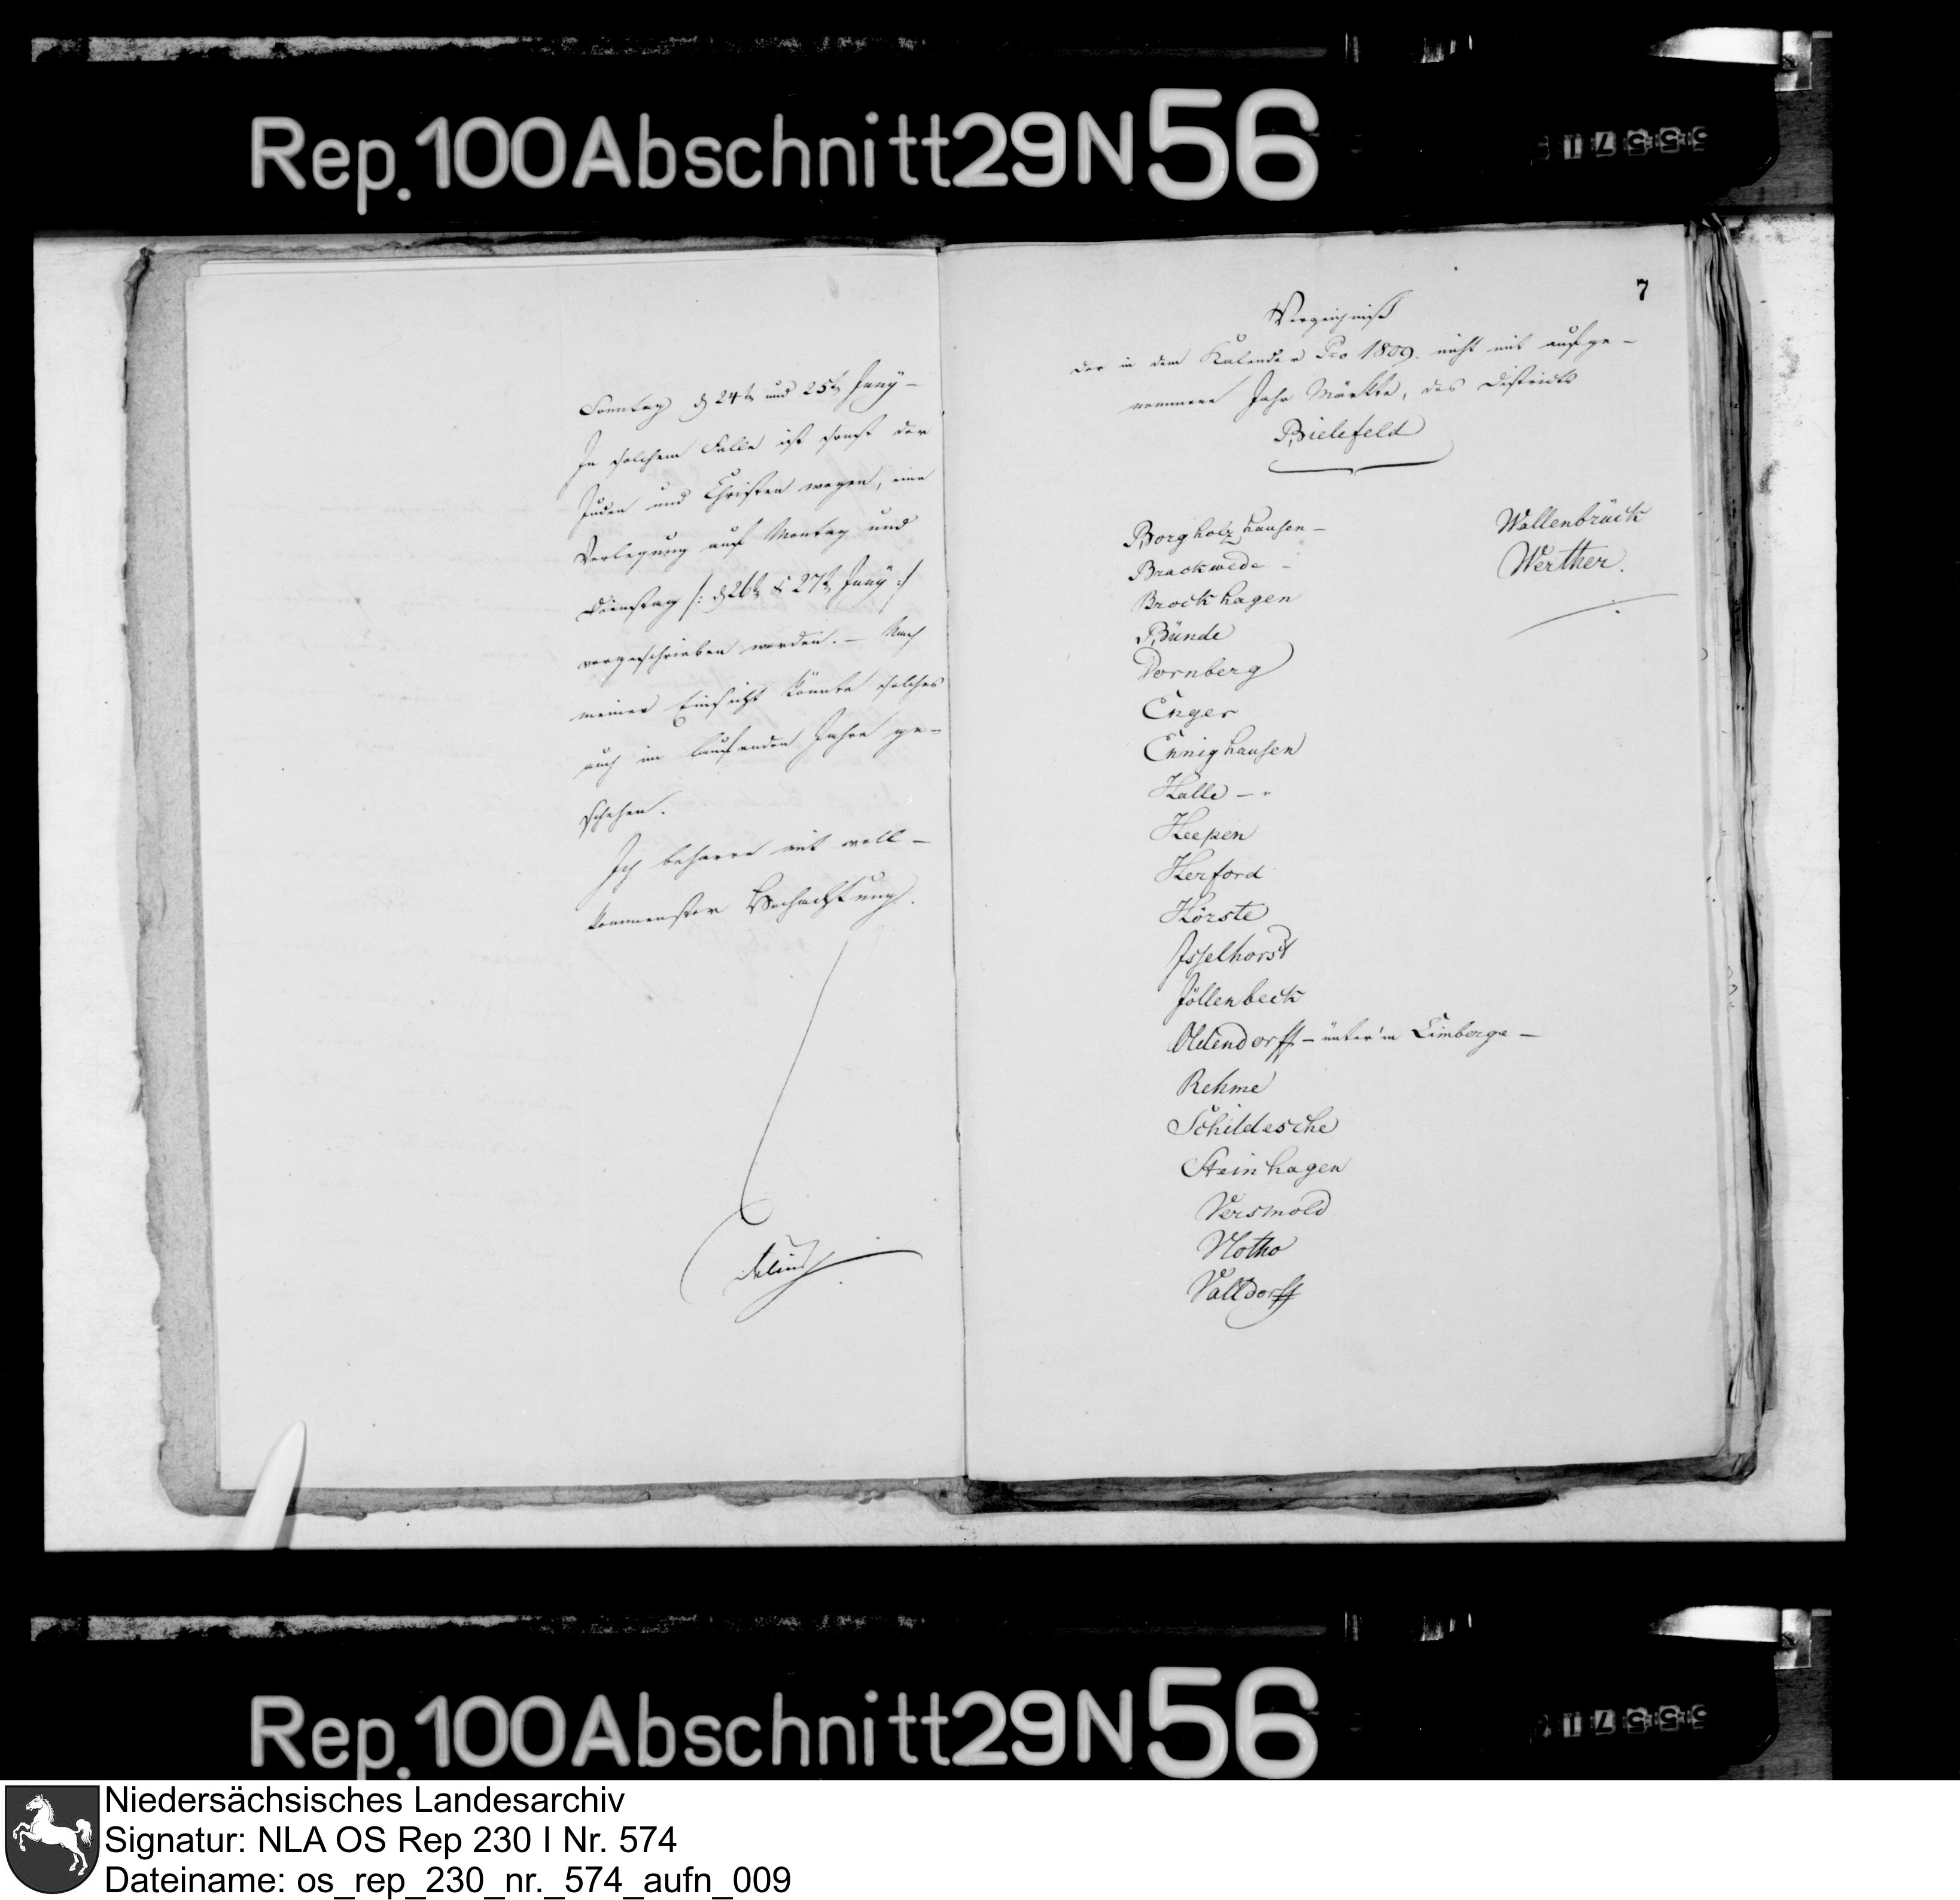 Rep. 100 Abschnitt 29 N 56
Sonntag d 24t und 25t Juny –
In solchem Falle ist sonst der
Juden und Christen wegen, eine
Verlegung auf Montag und
Dienstag /: d 26t & 27t Juny :/
vorgeschrieben worden. – Nach
meiner Einsicht könnte solches
auch im laufenden Jahre ge-
schehen.
Ich beharre mit voll-
kommenster Hochachtung.
Delius
7
Verzeichniß
der in dem Kalender Pro 1809. nicht mit aufge-
nommene Jahr Märkte, des Districts
Bielefeld
Borgholzhausen –
Brackwede –
Brockhagen
Bünde
Dornberg
Enger
Ennighausen
Halle –
Heepen
Herford
Hörste
Isselhorst
Jöllenbeck
Oldendorff – unter'm Limberge –
Rehme
Schildesche
Steinhagen
Versmold
Vlotho
Valldorff
Wallenbrück
Werther.
Rep. 100 Abschnitt 29 N 56
Niedersächsisches Landesarchiv
Signatur: NLA OS Rep 230 I Nr. 574
Dateiname: os_rep_230_nr._574_aufn_009